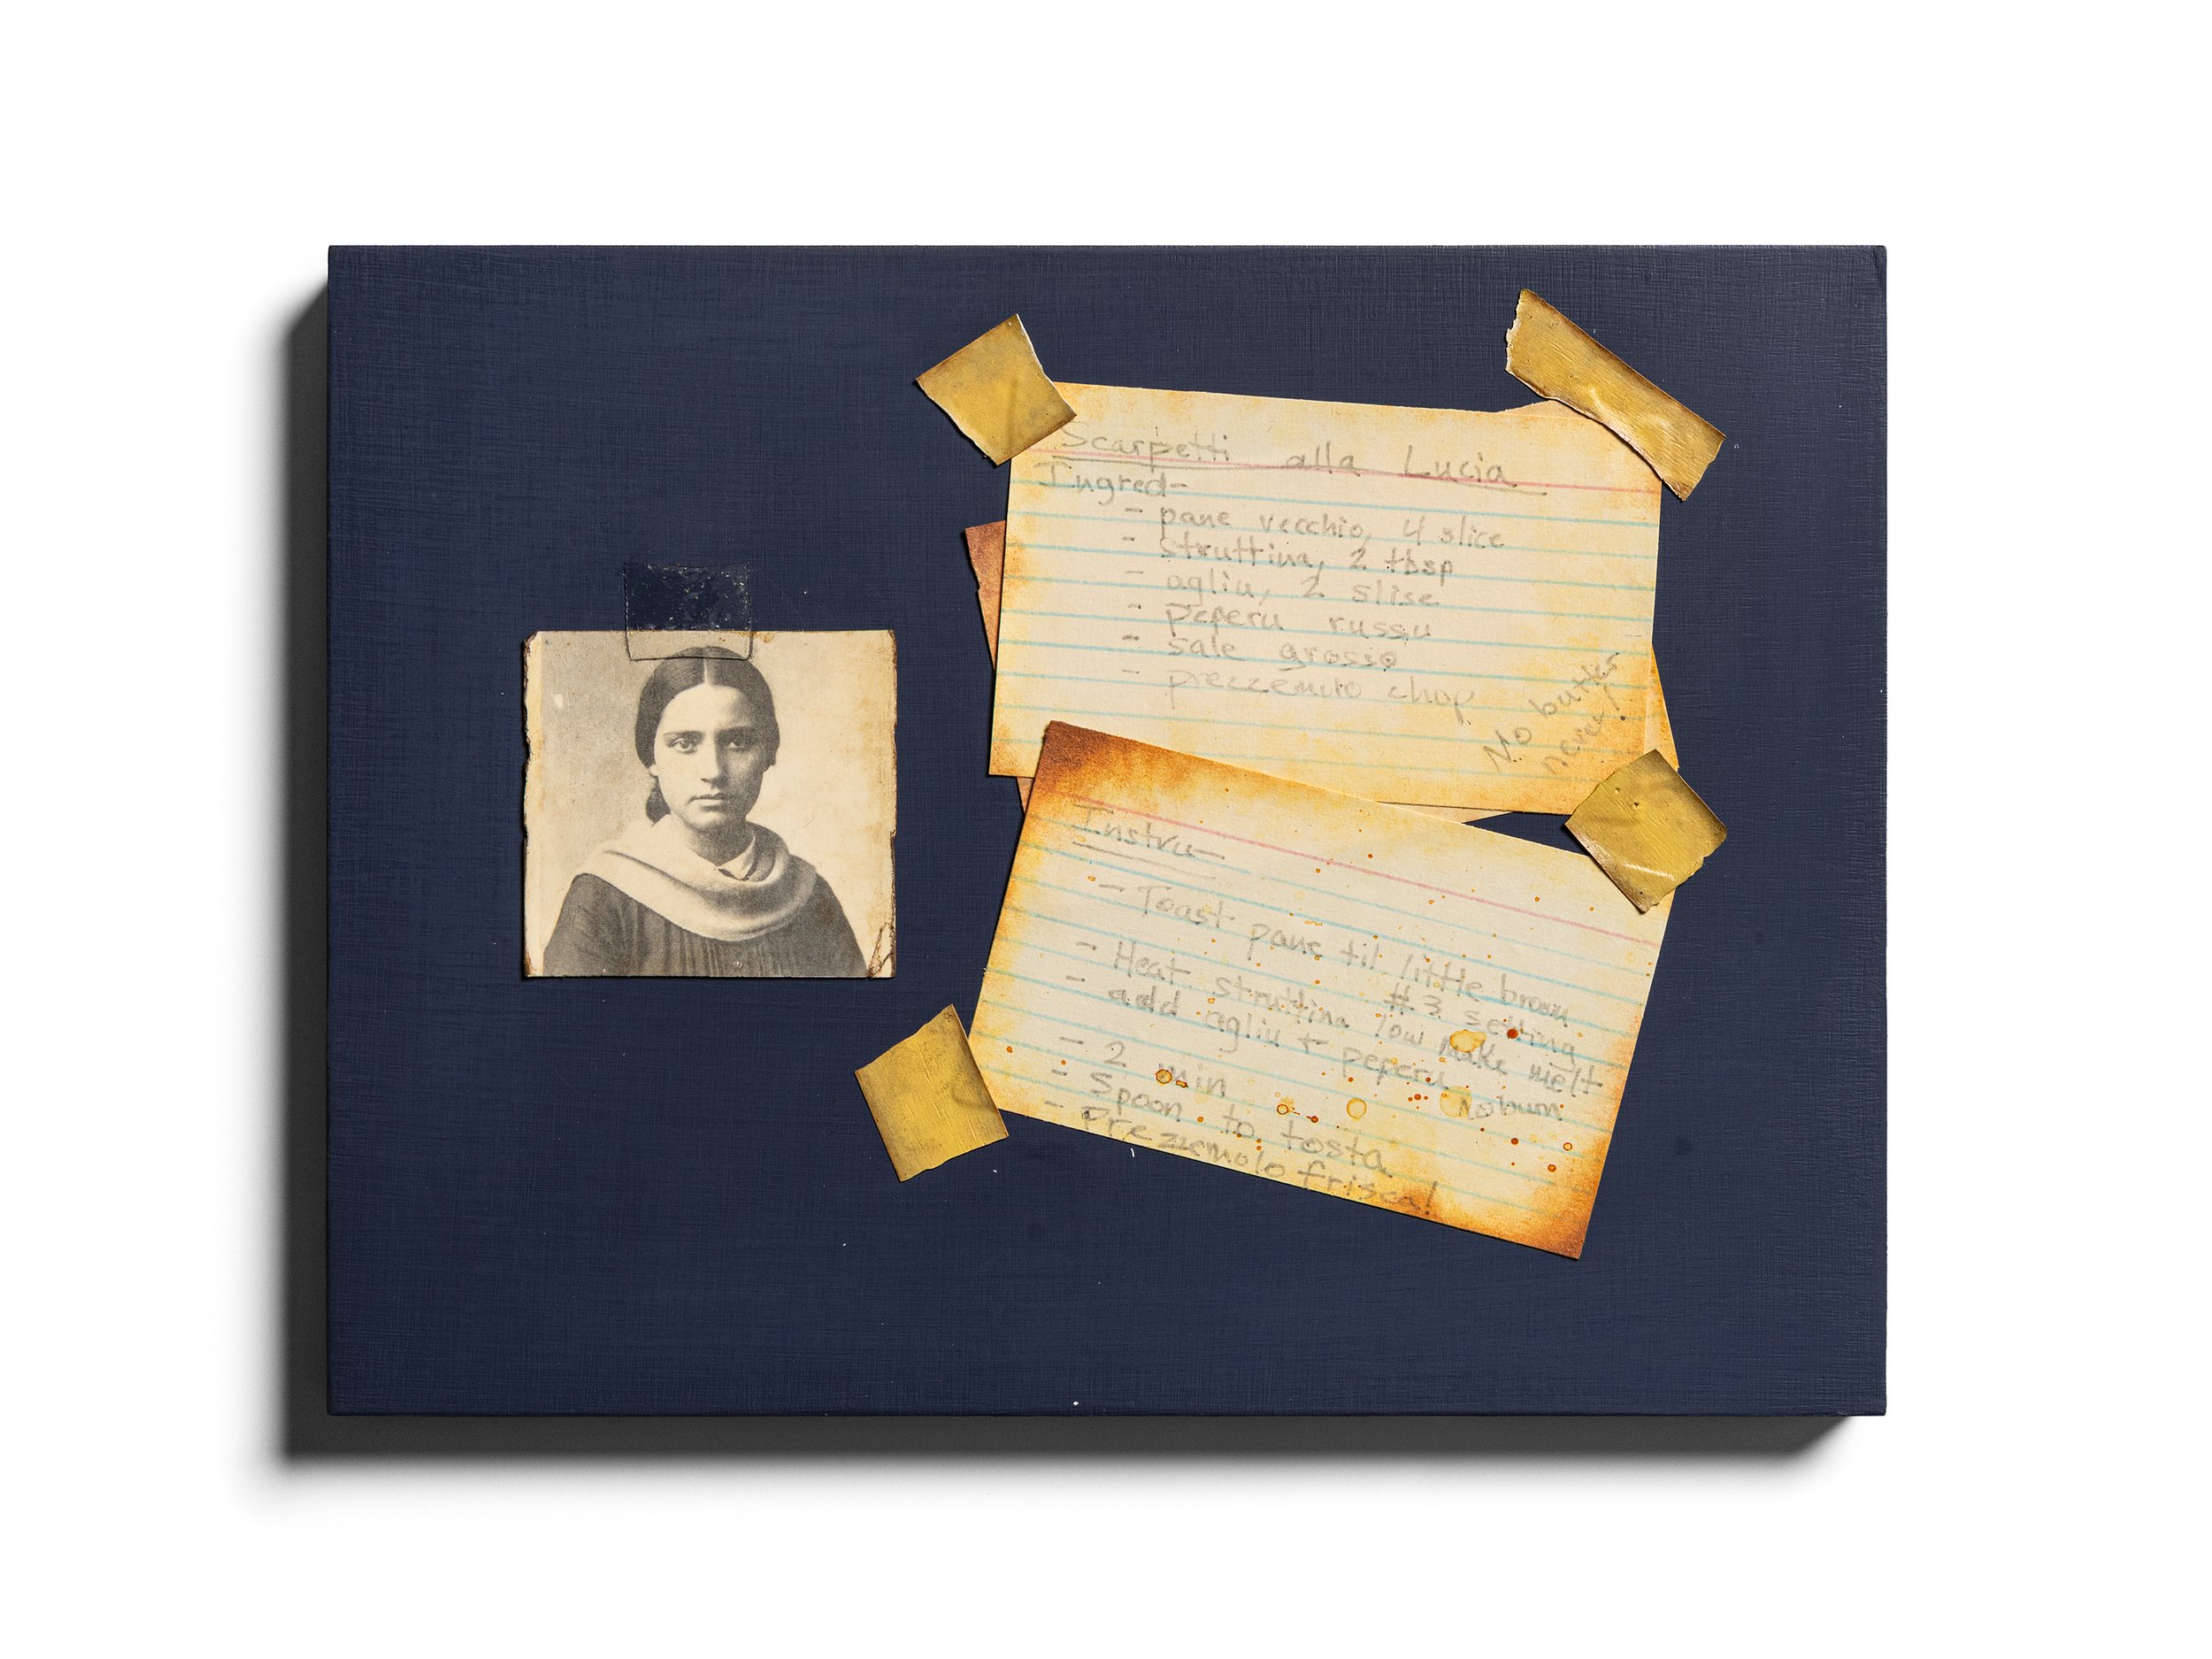 Scarpetti alla Lucia
Ingred-
- pane vecchio, 4 slice
- struttina, 2 tbsp
- agliu, 2 slise
- peperu russu
- sale grosso
- prezzemulo chop
No butter
never!
Instru-
- Toast pane til little brown
#3 setting
- Heat struttina low make melt
- add agliu + peperu
- 2 min noburn
- Spoon to tosta
- Prezzemolo frisca!